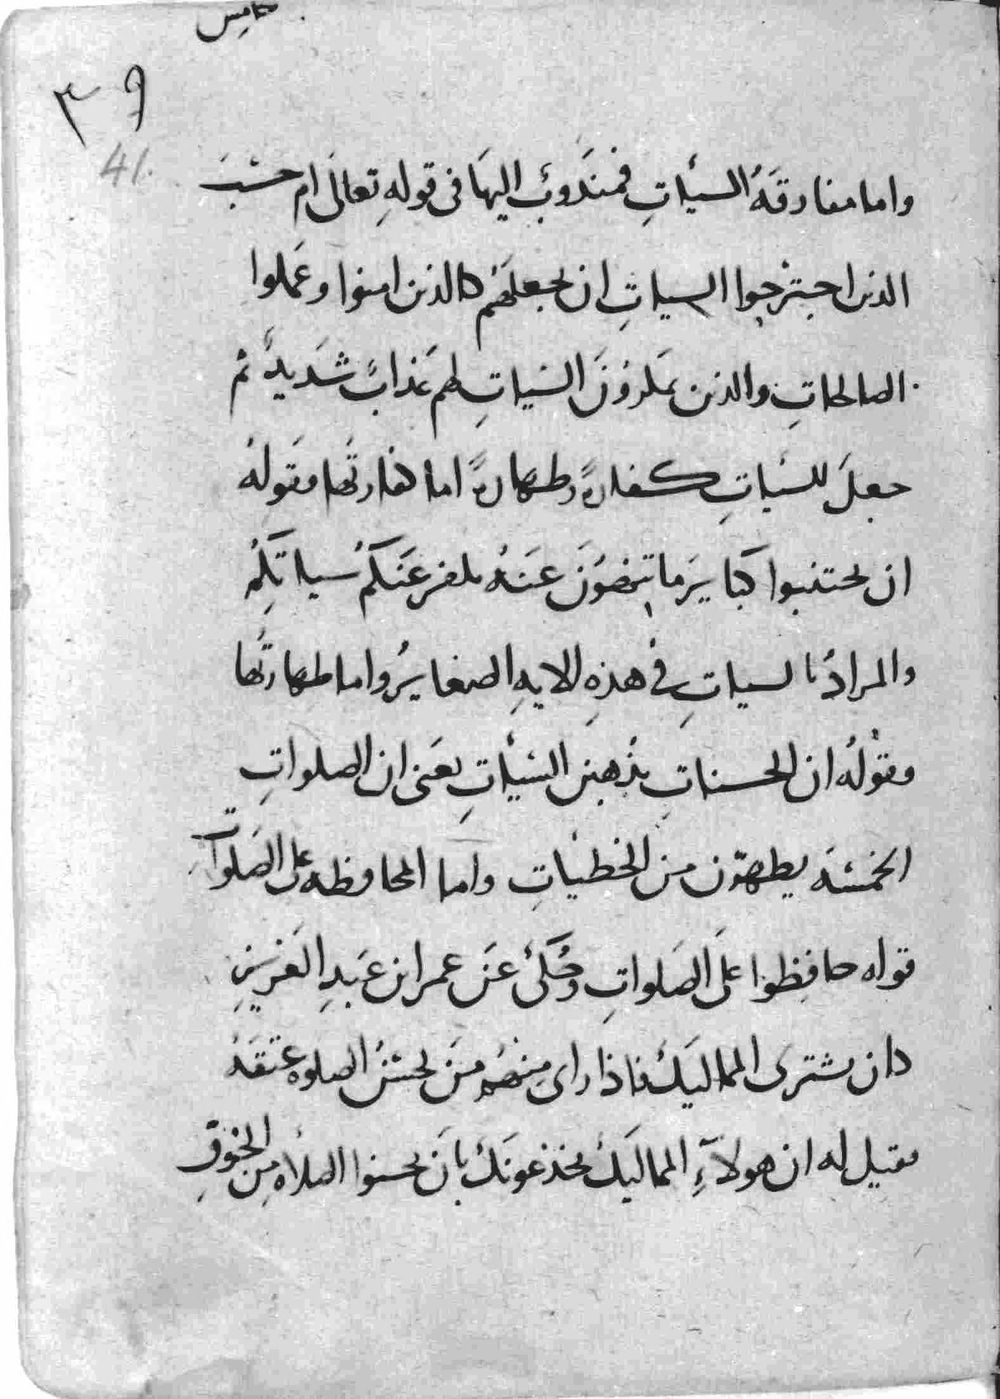 خامس
٣٩
41.
واما مفارقَةُ السئاتِ فمندَوبٌ اليهَا فى قولهِ تعالىَ ام حسَبَ
الذين اجترحوا السيات ان نجعلهم كالذين امنوا وعَملوا
الصالحاتِ والذين يمكرُونَ السَياتِ لهم عَذابٌ شَديدٌ ثم
جعلَ للسَئاتِ كفارةً وطهارةً اما كفارتُها فقَولهُ
ان تجتنبوا كبَايرَ ما تنهَونَ عَنهُ نكفر عَنكمُ سياتكمُ
والمرادُ بالسياتِ فى هذهِ الايهِ الصغايرُ واما طهارتُها
فقولُه ان الحسناتِ يذُهبن السَئاتِ يعَنى ان الصلواتِ
الخمسَه يطهرّن من الخطئاتِ واما المحافظه على الصَلواتِ
قوله حافِظوا علىَ الصَلواتِ وحُكىَ عَن عمر ابن عَبدِ العَزيزِ
كان يشترى المماليَكَ فاذا راى منهُم مَن يحسنُ الصلوه عتقَهُ
فقيل له ان هولآءِ المماليَكَ يخدعونَكَ بانَ يحسنوا الصلاه مِن الخوفِ